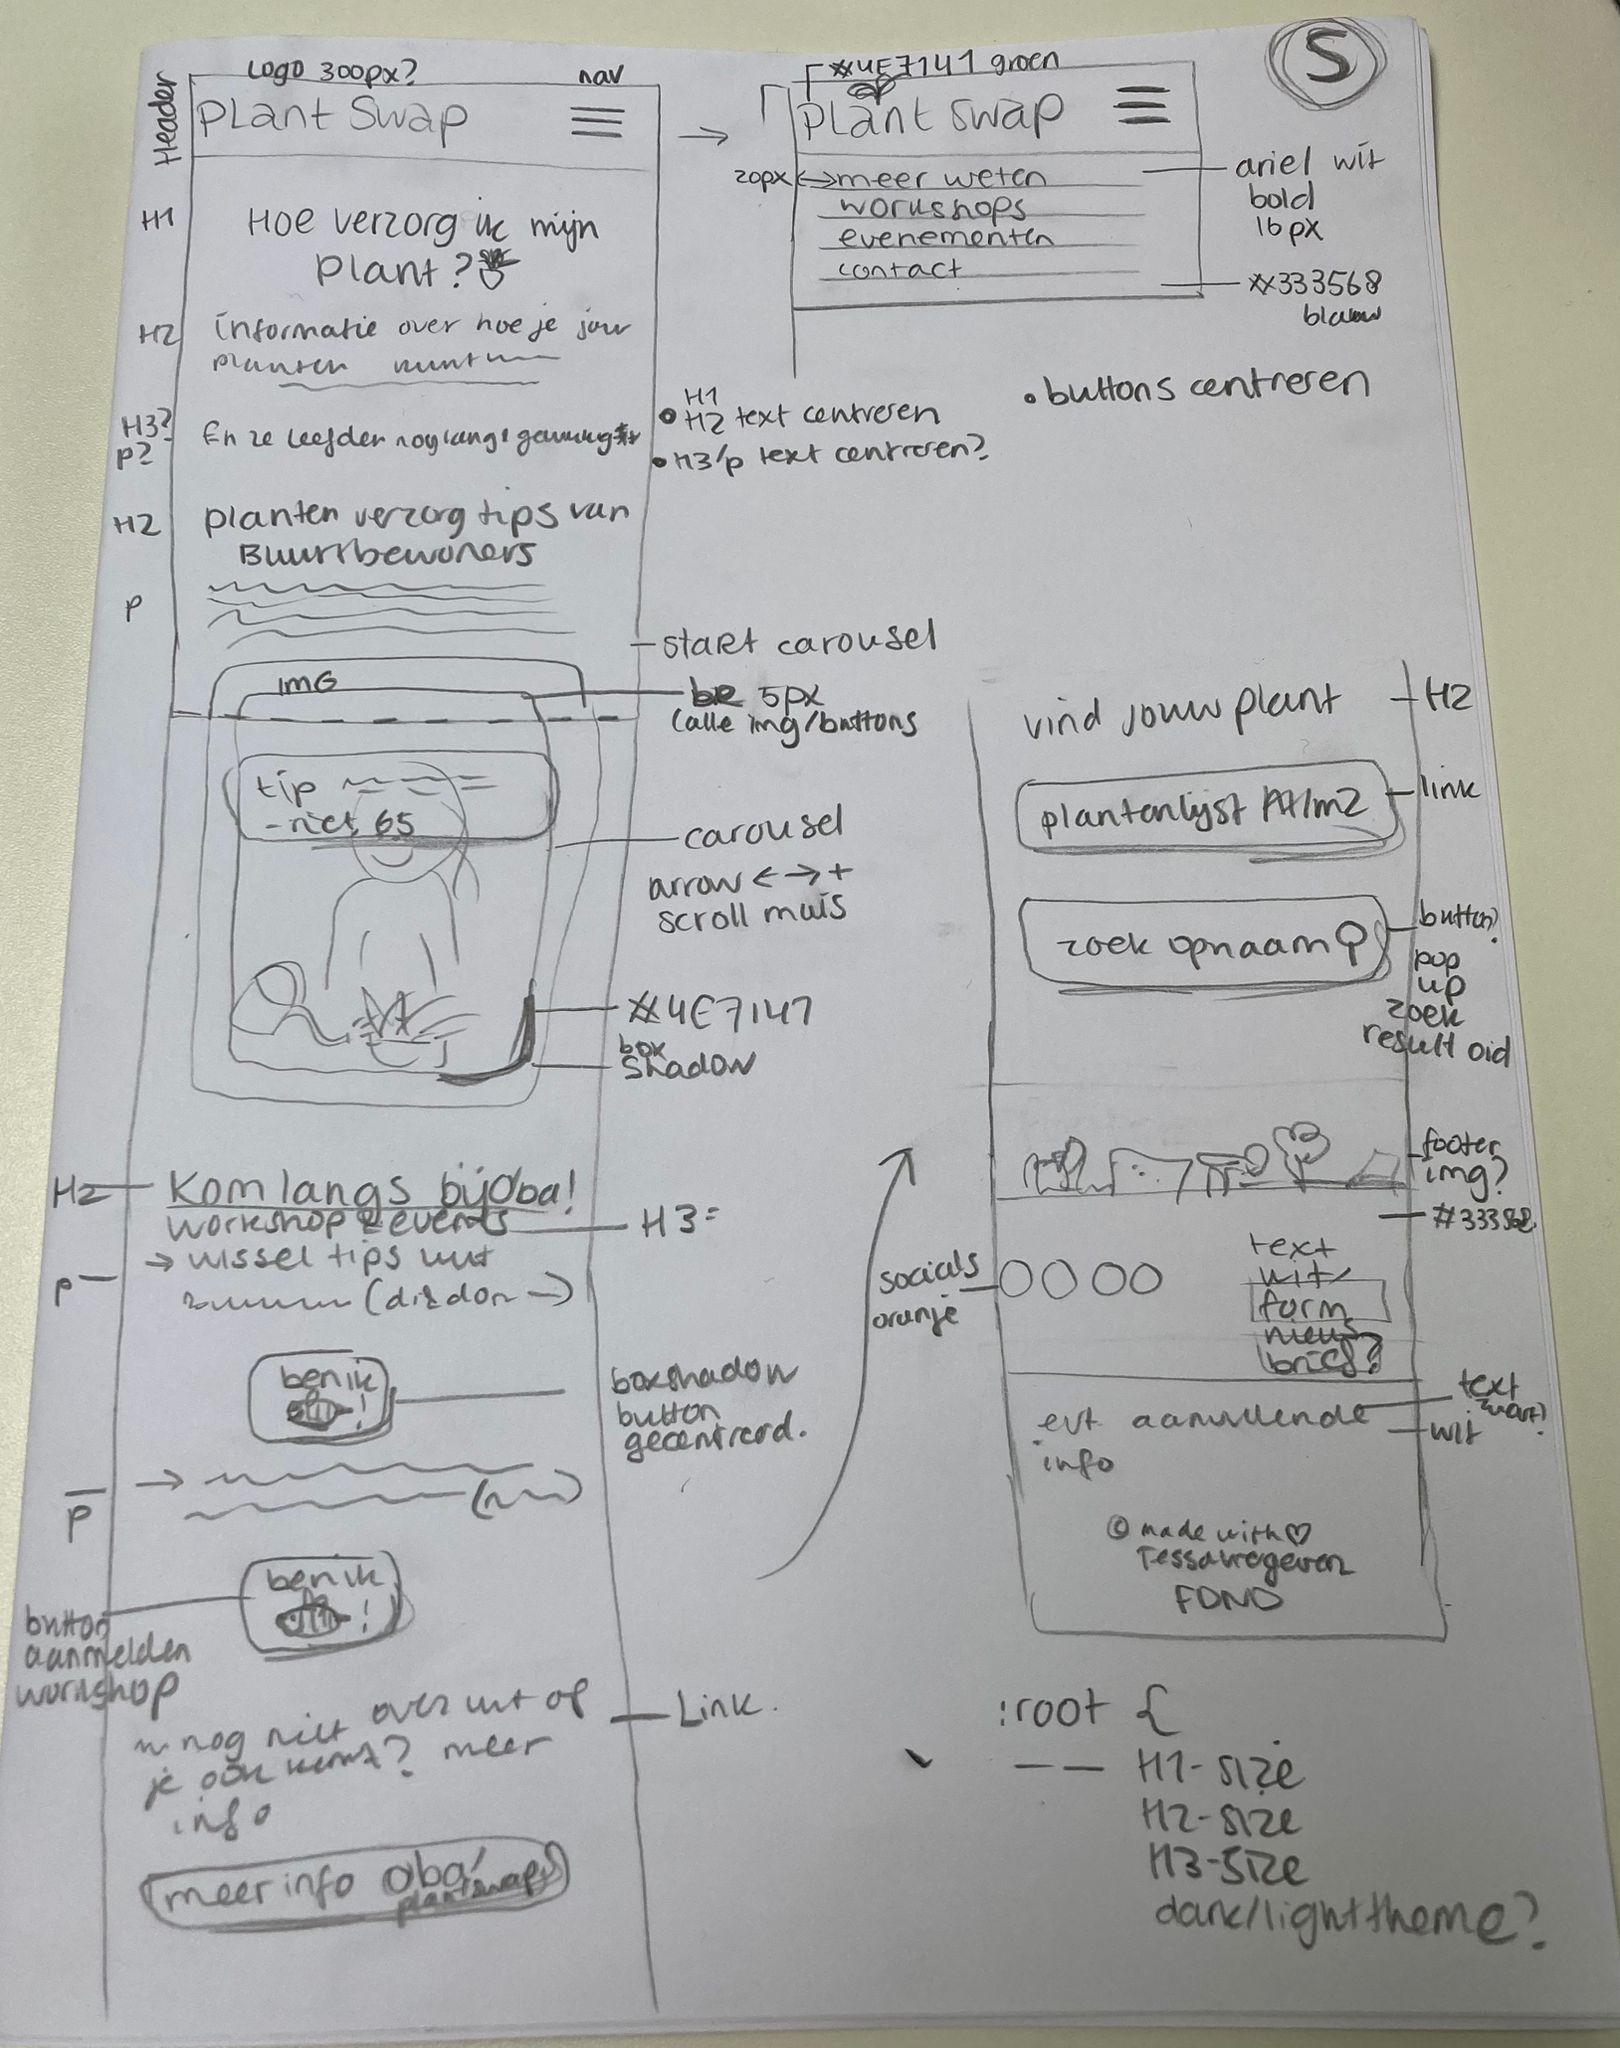 Header
Logo 300px?
nav
Plant Swap
H1
Hoe verzorg ik mijn
plant?
H2
informatie over hoe je jouw
planten
H3?
p?
En ze leefden nog lang & gelukkig
H2
planten verzorg tips van
Buurtbewoners
p
start carousel
IMG
5px
(alle img/buttons
tip
- niet 65
carousel
arrow ← → +
scroll muis
#4E7147
box
shadow
H2
Kom langs bij Oba!
workshop & events
H3=
p
→ wissel tips uit
(dit don →)
ben ik
!
boxshadow
button
gecentreerd.
p
→
ben ik
!
button
aanmelden
workshop
nog niet over uit of
je ook komt? meer
info
Link.
meer info oba
plantswap
S
#4E7141 groen
→
Plant Swap
20px ↔ meer weten
workshops
evenementen
contact
ariel wit
bold
16px
#333568
blauw
• buttons centreren
H1
• H2 text centreren
• H3/p text centreren?
vind jouw plant
H2
plantenlijst A4/m2
link
zoek op naam
button?
pop
up
zoek
result oid
footer
img?
#333568
socials
oranje
text
wit
form
nieuws
brief?
evt aanvullende
info
text
zwart?
wit
© made with ♡
FDND
:root {
-- H1-size
H2-size
H3-size
dark/light theme?